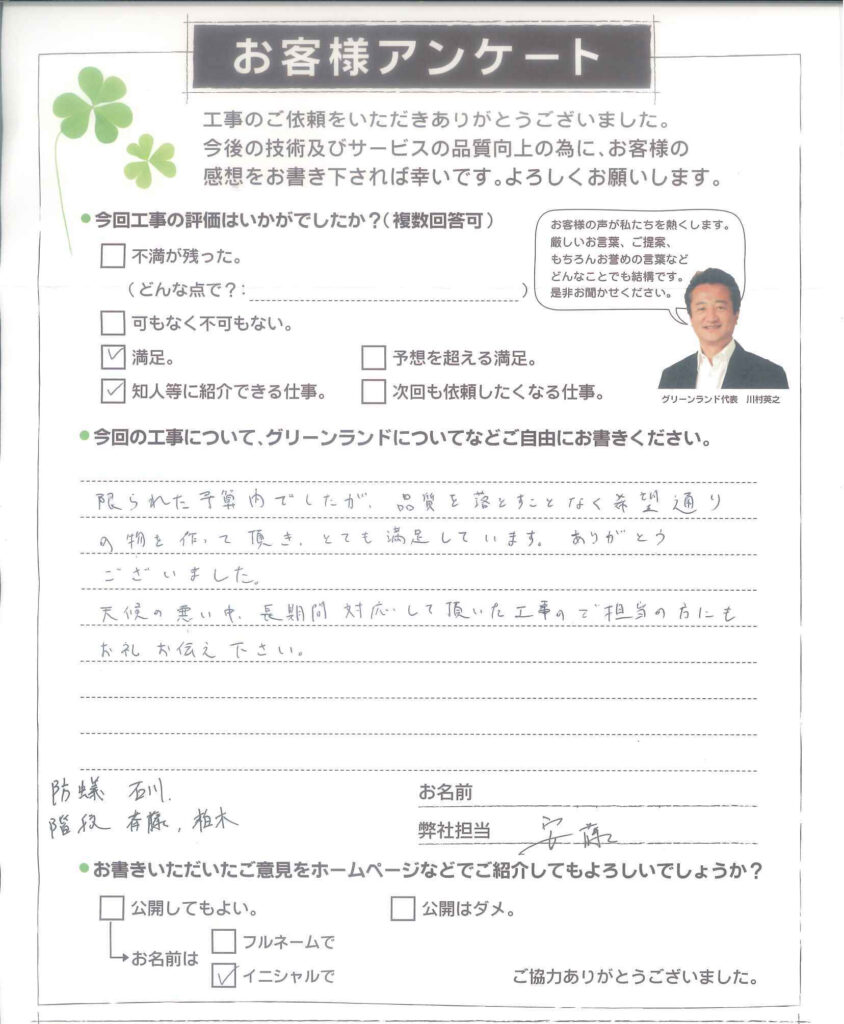 お客様アンケート
工事のご依頼をいただきありがとうございました。
今後の技術及びサービスの品質向上の為に、お客様の
感想をお書き下されば幸いです。よろしくお願いします。
今回工事の評価はいかがでしたか?(複数回答可)
不満が残った。
(どんな点で?: )
可もなく不可もない。
満足。
予想を超える満足。
知人等に紹介できる仕事。
次回も依頼したくなる仕事。
お客様の声が私たちを熱くします。
厳しいお言葉、ご提案、
もちろんお誉めの言葉など
どんなことでも結構です。
是非お聞かせください。
グリーンランド代表 川村英之
今回の工事について、グリーンランドについてなどご自由にお書きください。
限られた予算内でしたが、品質を落とすことなく希望通り
の物を作って頂き、とても満足しています。ありがとう
ございました。
天候の悪い中、長期間対応して頂いた工事ので担当の方にも
お礼お伝え下さい。
防蟻 石川.
階段 斉藤, 柏木
お名前
弊社担当 安藤
お書きいただいたご意見をホームページなどでご紹介してもよろしいでしょうか?
公開してもよい。
公開はダメ。
お名前は
フルネームで
イニシャルで
ご協力ありがとうございました。